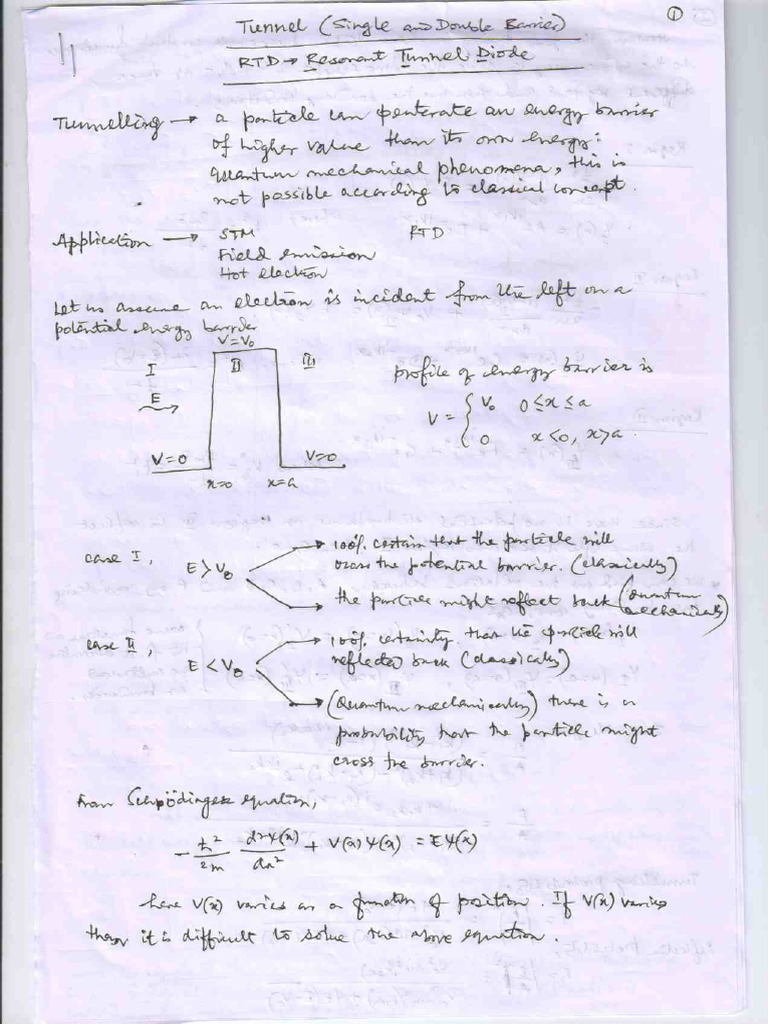 ①
Tunnel (Single and Double Barrier)
RTD → Resonant Tunnel Diode
Tunnelling → a particle can penterate an energy barrier
of higher value than its own energy:
quantum mechanical phenomena, this is
not possible according to classical concept.
Application → STM RTD
Field emission
Hot electron
Let us assume an electron is incident from the left on a
potential energy barrier
V=V₀
I II III
E
V=0 V=0
x=0 x=a
profile of energy barrier is
V = { V₀ 0≤x≤a
0 x<0, x>a.
case I, E>V₀ → 100% certain that the particle will
cross the potential barrier. (classically)
→ the particle might reflect back (Quantum
mechanically)
case II, E<V₀ → 100% certainty that the particle will
reflected back (classically)
→ (Quantum mechanically) there is a
probability that the particle might
cross the barrier.
From Schrödinger equation,
-ħ²/2m d²Ψ(x)/dx² + V(x)Ψ(x) = EΨ(x)
here V(x) varies as a function of position. If V(x) varies
then it is difficult to solve the above equation.